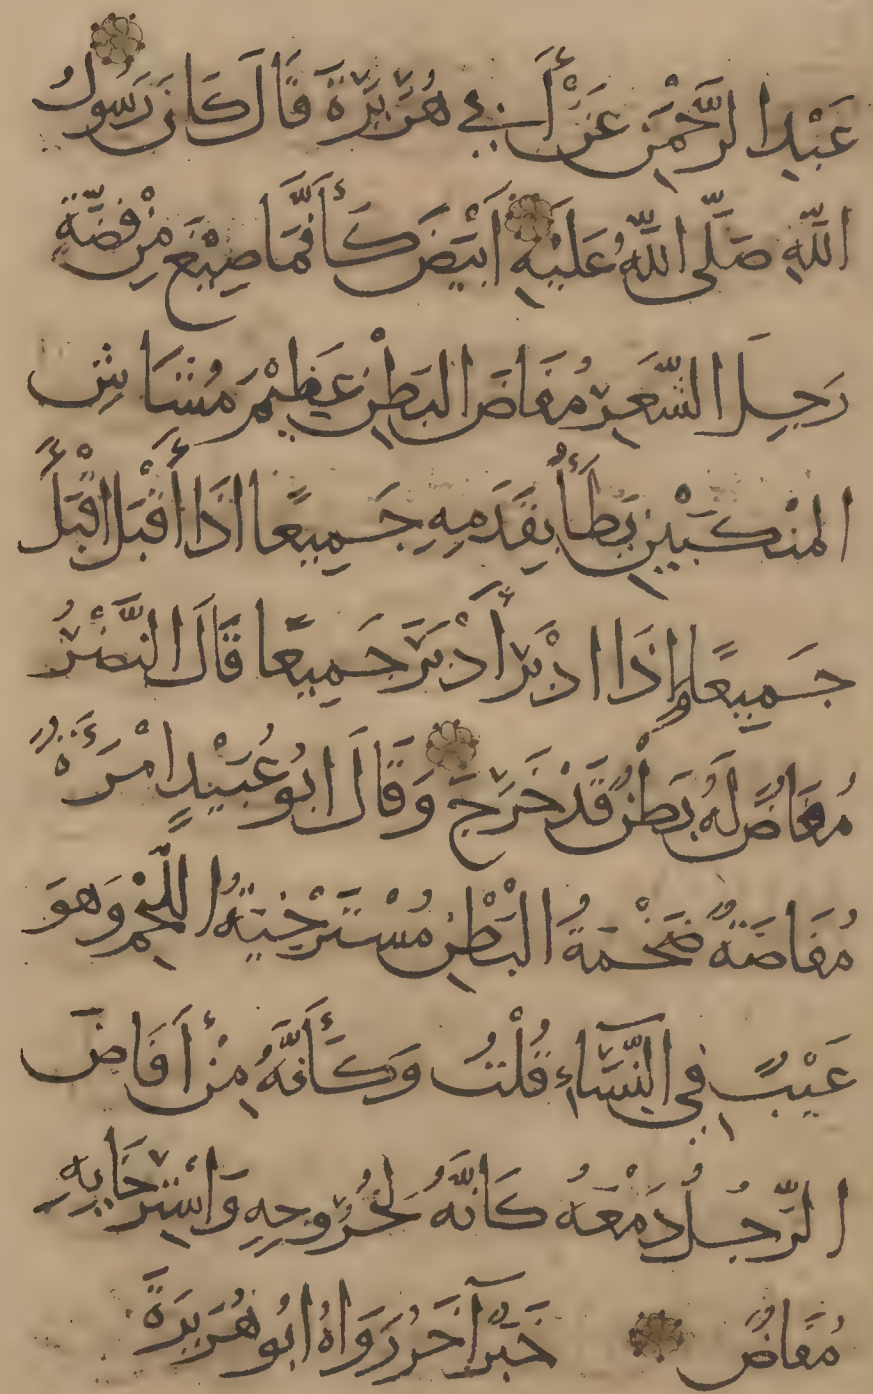 عَبْدِ الرَّحْمٰنِ عَنْ أَبِي هُرَيْرَةَ قَالَ كَانَ رَسُولُ
اللّٰهِ صَلَّى اللّٰهُ عَلَيْهِ أَبْيَضَ كَأَنَّمَا صِيْغَ مِنْ فِضَّةٍ
رَجِلَ الشَّعَرِ مُفَاضَ البَطْنِ عَظِيْمَ مُشَاشِ
المَنْكَبَيْنِ يَطَأُ بِقَدَمِهِ جَمِيعًا اذَا أَقْبَلَ اقْبَلَ
جَمِيعًا وَاِذَا ادْبَرَ أَدْبَرَ جَمِيعًا قَالَ النَّضْرُ
مُفَاضٌ لَهُ بَطْنٌ قَدْ خَرَجَ وَقَالَ ابُو عُبَيْدٍ امْرَءَةٌ
مُفَاضَةٌ ضَخْمَةُ البَطْنِ مُسْتَرْخِيَةُ اللَّحْمِ وَهوَ
عَيْبٌ فِي النِّسَاءِ قُلْتُ وَكَأَنَّهُ مِنْ أَفَاضَ
الرَّجُلُ دَمْعَهُ كَانَّهُ لِخُرُوجِهِ وَاسْتِرْخَايِهِ
مُفَاضٌ خَبَرٌ آخَرُ رَوَاهُ ابُو هُرَيرَةَ